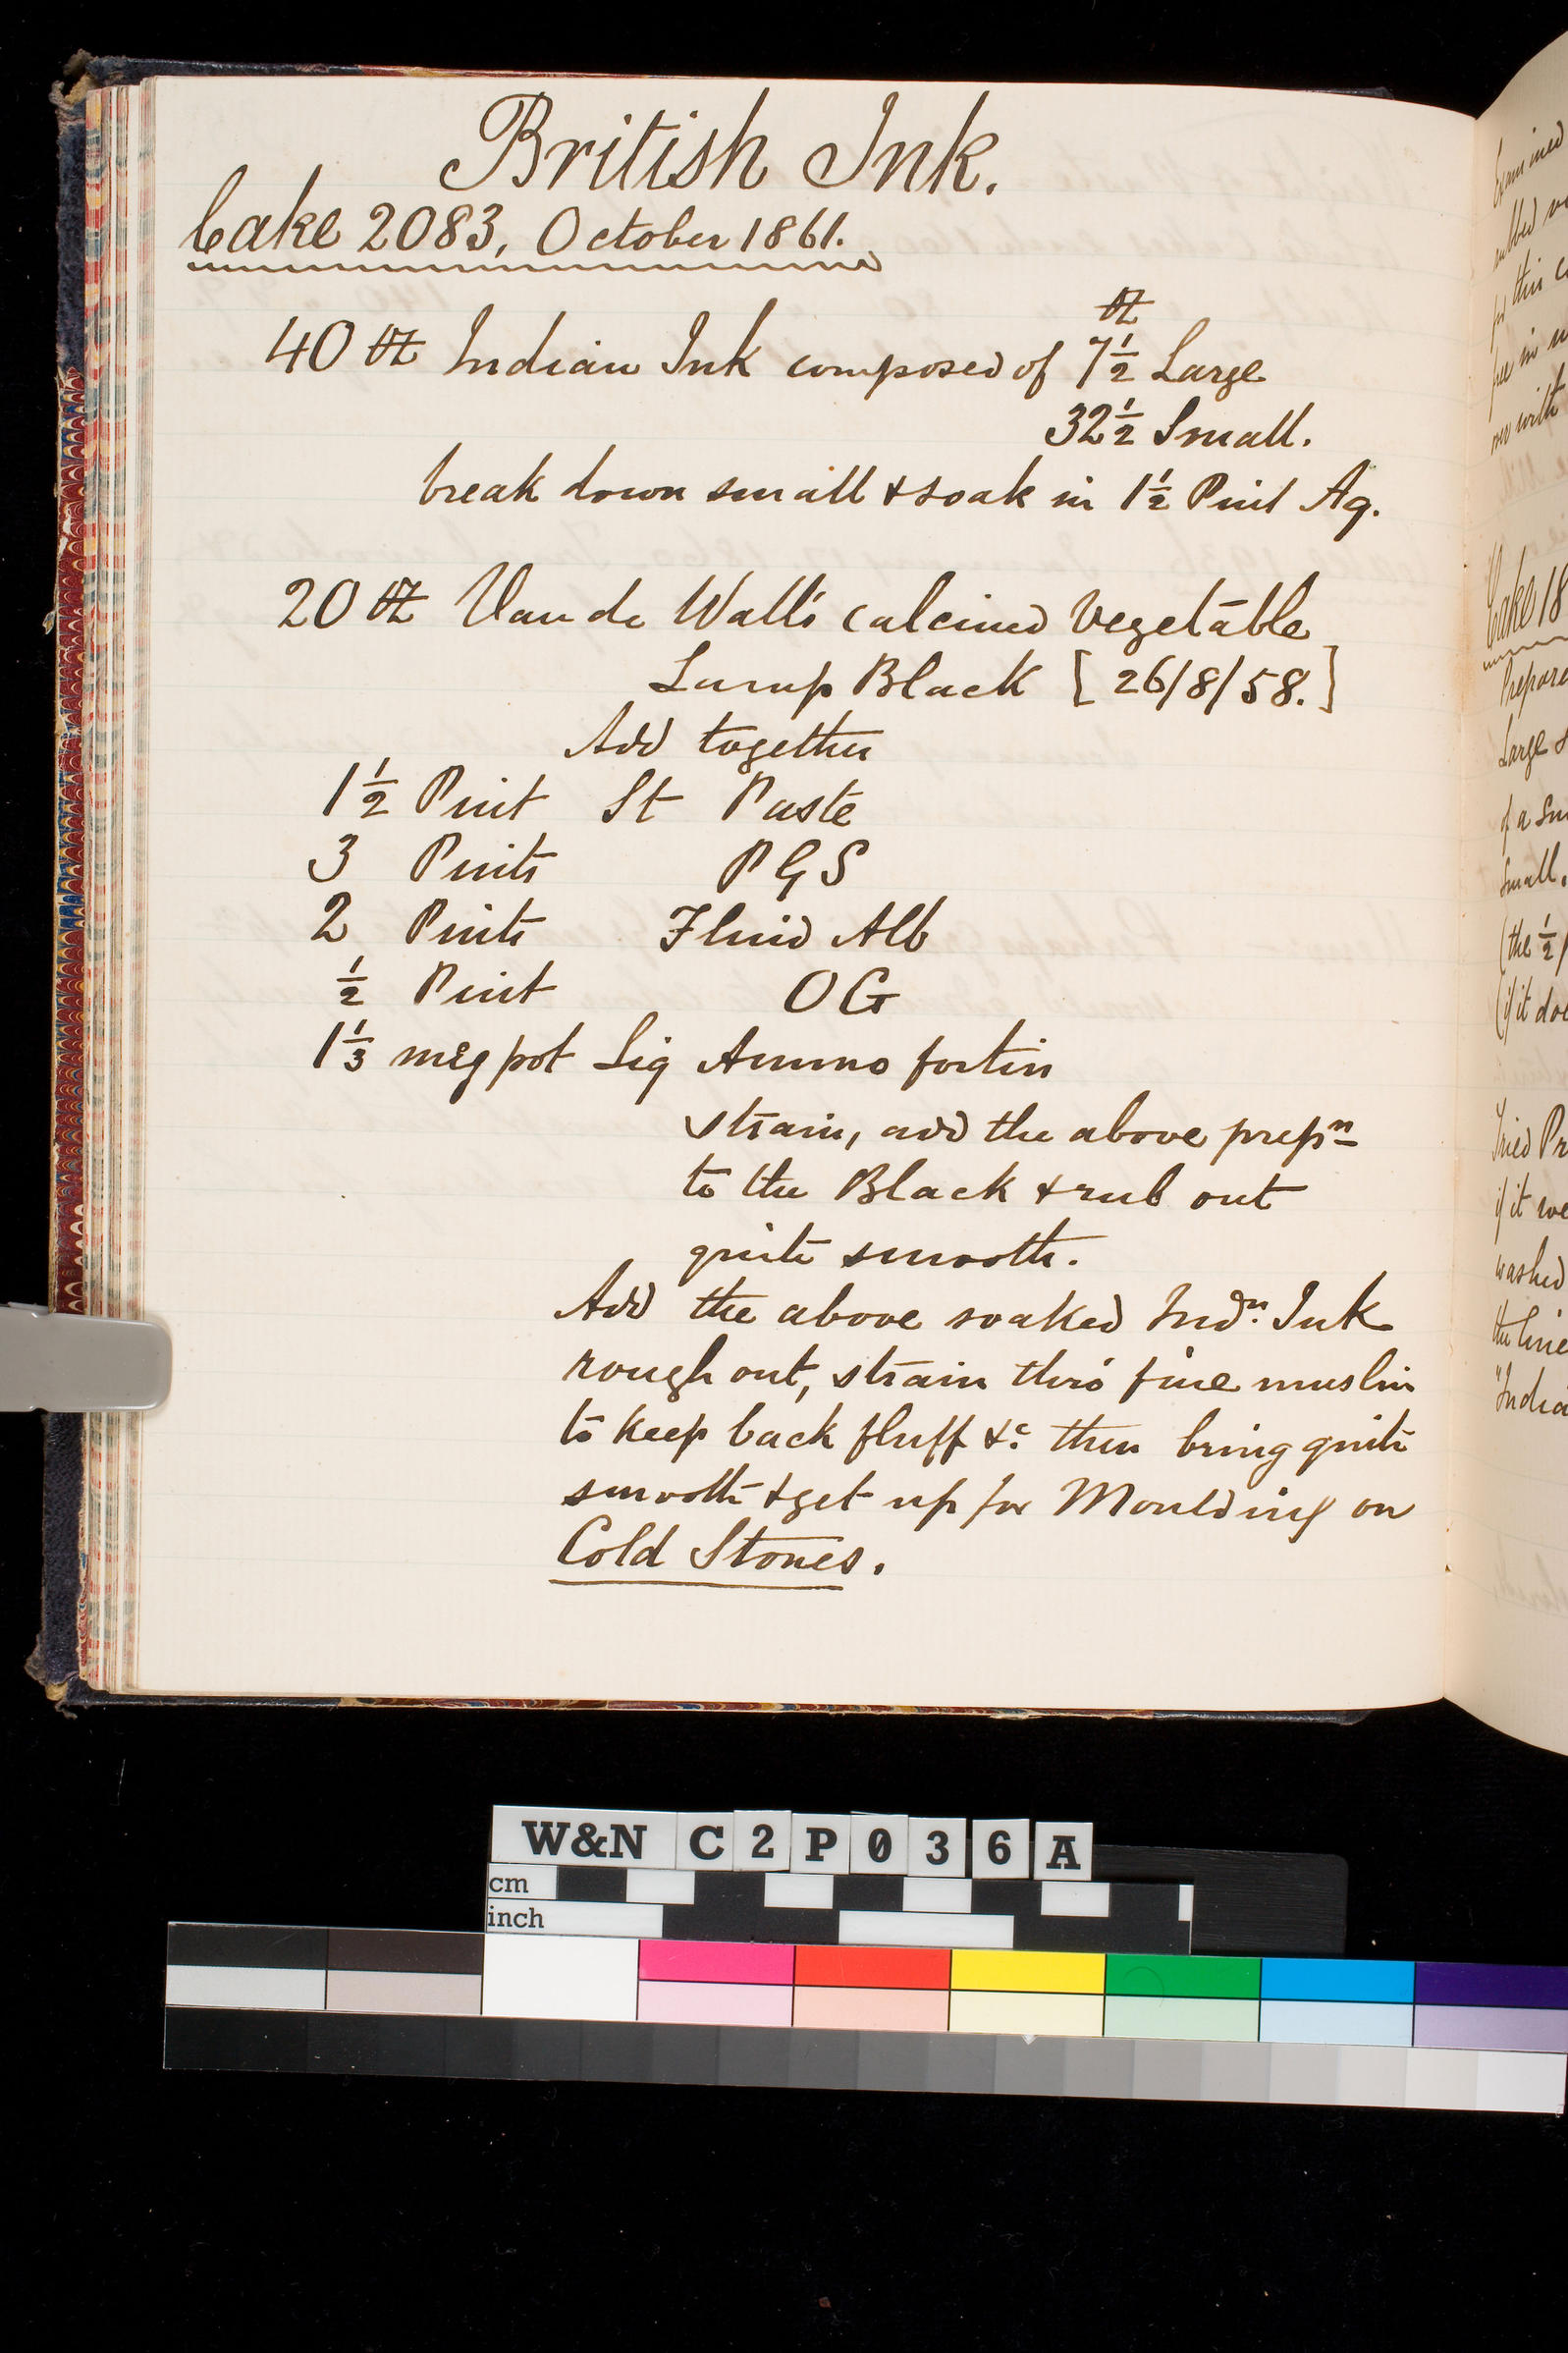 British Ink.
Cake 2083, October 1861.
oz
40 oz Indian Ink composed of 7½ Large
32½ Small.
break down small & soak in 1½ Pint Aq.
20 oz Van de Wall's calcined Vegetable
Lamp Black [26/8/58.]
Add together
1½ Pint St Paste
3 Pints P G S
2 Pints Fluid Alb
½ Pint O G
1⅓ meg pot Liq Ammo fortis
strain, add the above prepn
to the Black & rub out
quite smooth.
Add the above soaked Indn. Ink
rough out, strain thro' fine muslin
to keep back fluff &c. then bring quite
smooth & get up for Moulding on
Cold Stones.
Examined
rubbed
for this
free in
with
Cake 18
Large
of a
Small.
(the ½
(if it
Tried
if it
washed
the
"India
W&N C2P036A
cm
inch